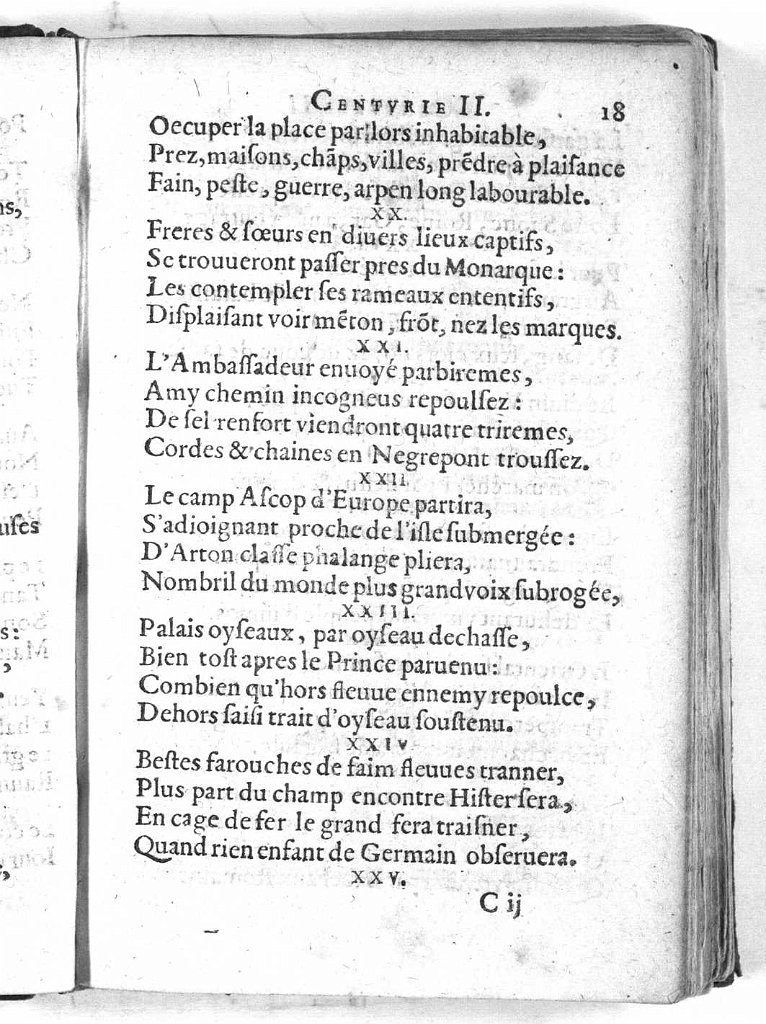 ns,
uſes
s:
,
CENTVRIE II. 18
Oecuper la place par lors inhabitable,
Prez, maiſons, chãps, villes, prẽdre à plaiſance
Fain, peſte, guerre, arpen long labourable.
XX.
Freres & ſœurs en diuers lieux captifs,
Se trouueront paſſer pres du Monarque:
Les contempler ſes rameaux ententifs,
Diſplaiſant voir mẽton, frõt, nez les marques.
XXI.
L'Ambaſſadeur enuoyé par biremes,
Amy chemin incogneus repoulſez:
De ſel renfort viendront quatre triremes,
Cordes & chaines en Negrepont trouſſez.
XXII.
Le camp Aſcop d'Europe partira,
S'adioignant proche de l'iſle ſubmergée:
D'Arton claſſe phalange pliera,
Nombril du monde plus grand voix ſubrogée,
XXIII.
Palais oyſeaux, par oyſeau dechaſſe,
Bien toſt apres le Prince paruenu:
Combien qu'hors fleuue ennemy repoulce,
Dehors ſaiſi trait d'oyſeau ſouſtenu.
XXIV.
Beſtes farouches de faim fleuues tranner,
Plus part du champ encontre Hiſter ſera,
En cage de fer le grand fera traiſner,
Quand rien enfant de Germain obſeruera.
XXV.
C ij